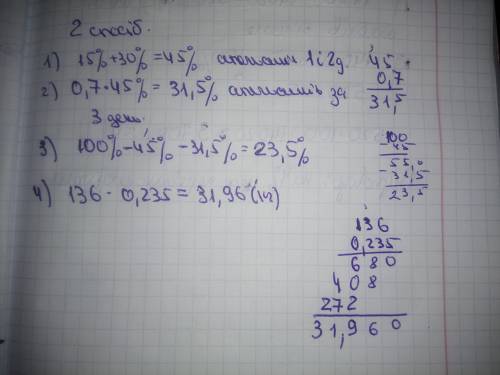 2 спосіб.
1) 15% + 30% = 45% 1 і 2 д.
2) 0,7 · 45% = 31,5% за
3 день
3) 100% - 45% - 31,5% = 23,5%
4) 136 · 0,235 = 31,96 (кг)
45
0,7
31,5
100
45
55,0
- 31,5
23,5
136
0,235
680
408
272
31,960